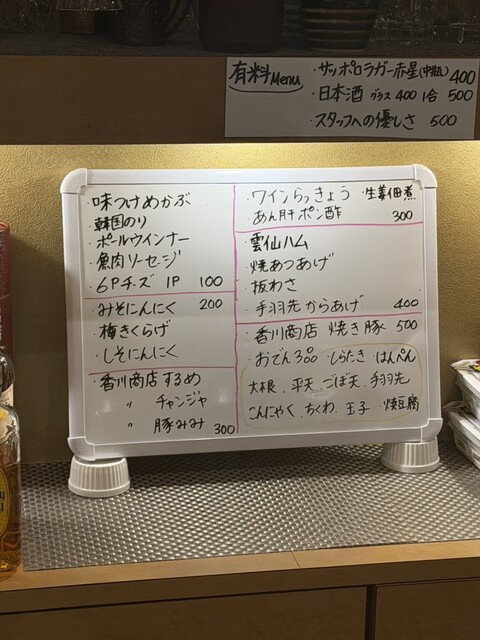 有料Menu
・サッポロラガー赤星(中瓶) 400
・日本酒 グラス 400 1合 500
・スタッフへの優しさ 500
・味つけめかぶ
・韓国のり
・ポールウインナー
・魚肉ソーセージ
・6Pチーズ 1P 100
・みそにんにく 200
・梅きくらげ
・しそにんにく
・香川商店 するめ
〃 チャンジャ
〃 豚みみ 300
・ワインらっきょう ・生姜佃煮
・あん肝ポン酢 300
・雲仙ハム
・焼あつあげ
・板わさ
・手羽先からあげ 400
・香川商店 焼き豚 500
・おでん300 ・しらたき ・はんぺん
大根、平天、ごぼ天、手羽先
こんにゃく、ちくわ、玉子、焼豆腐